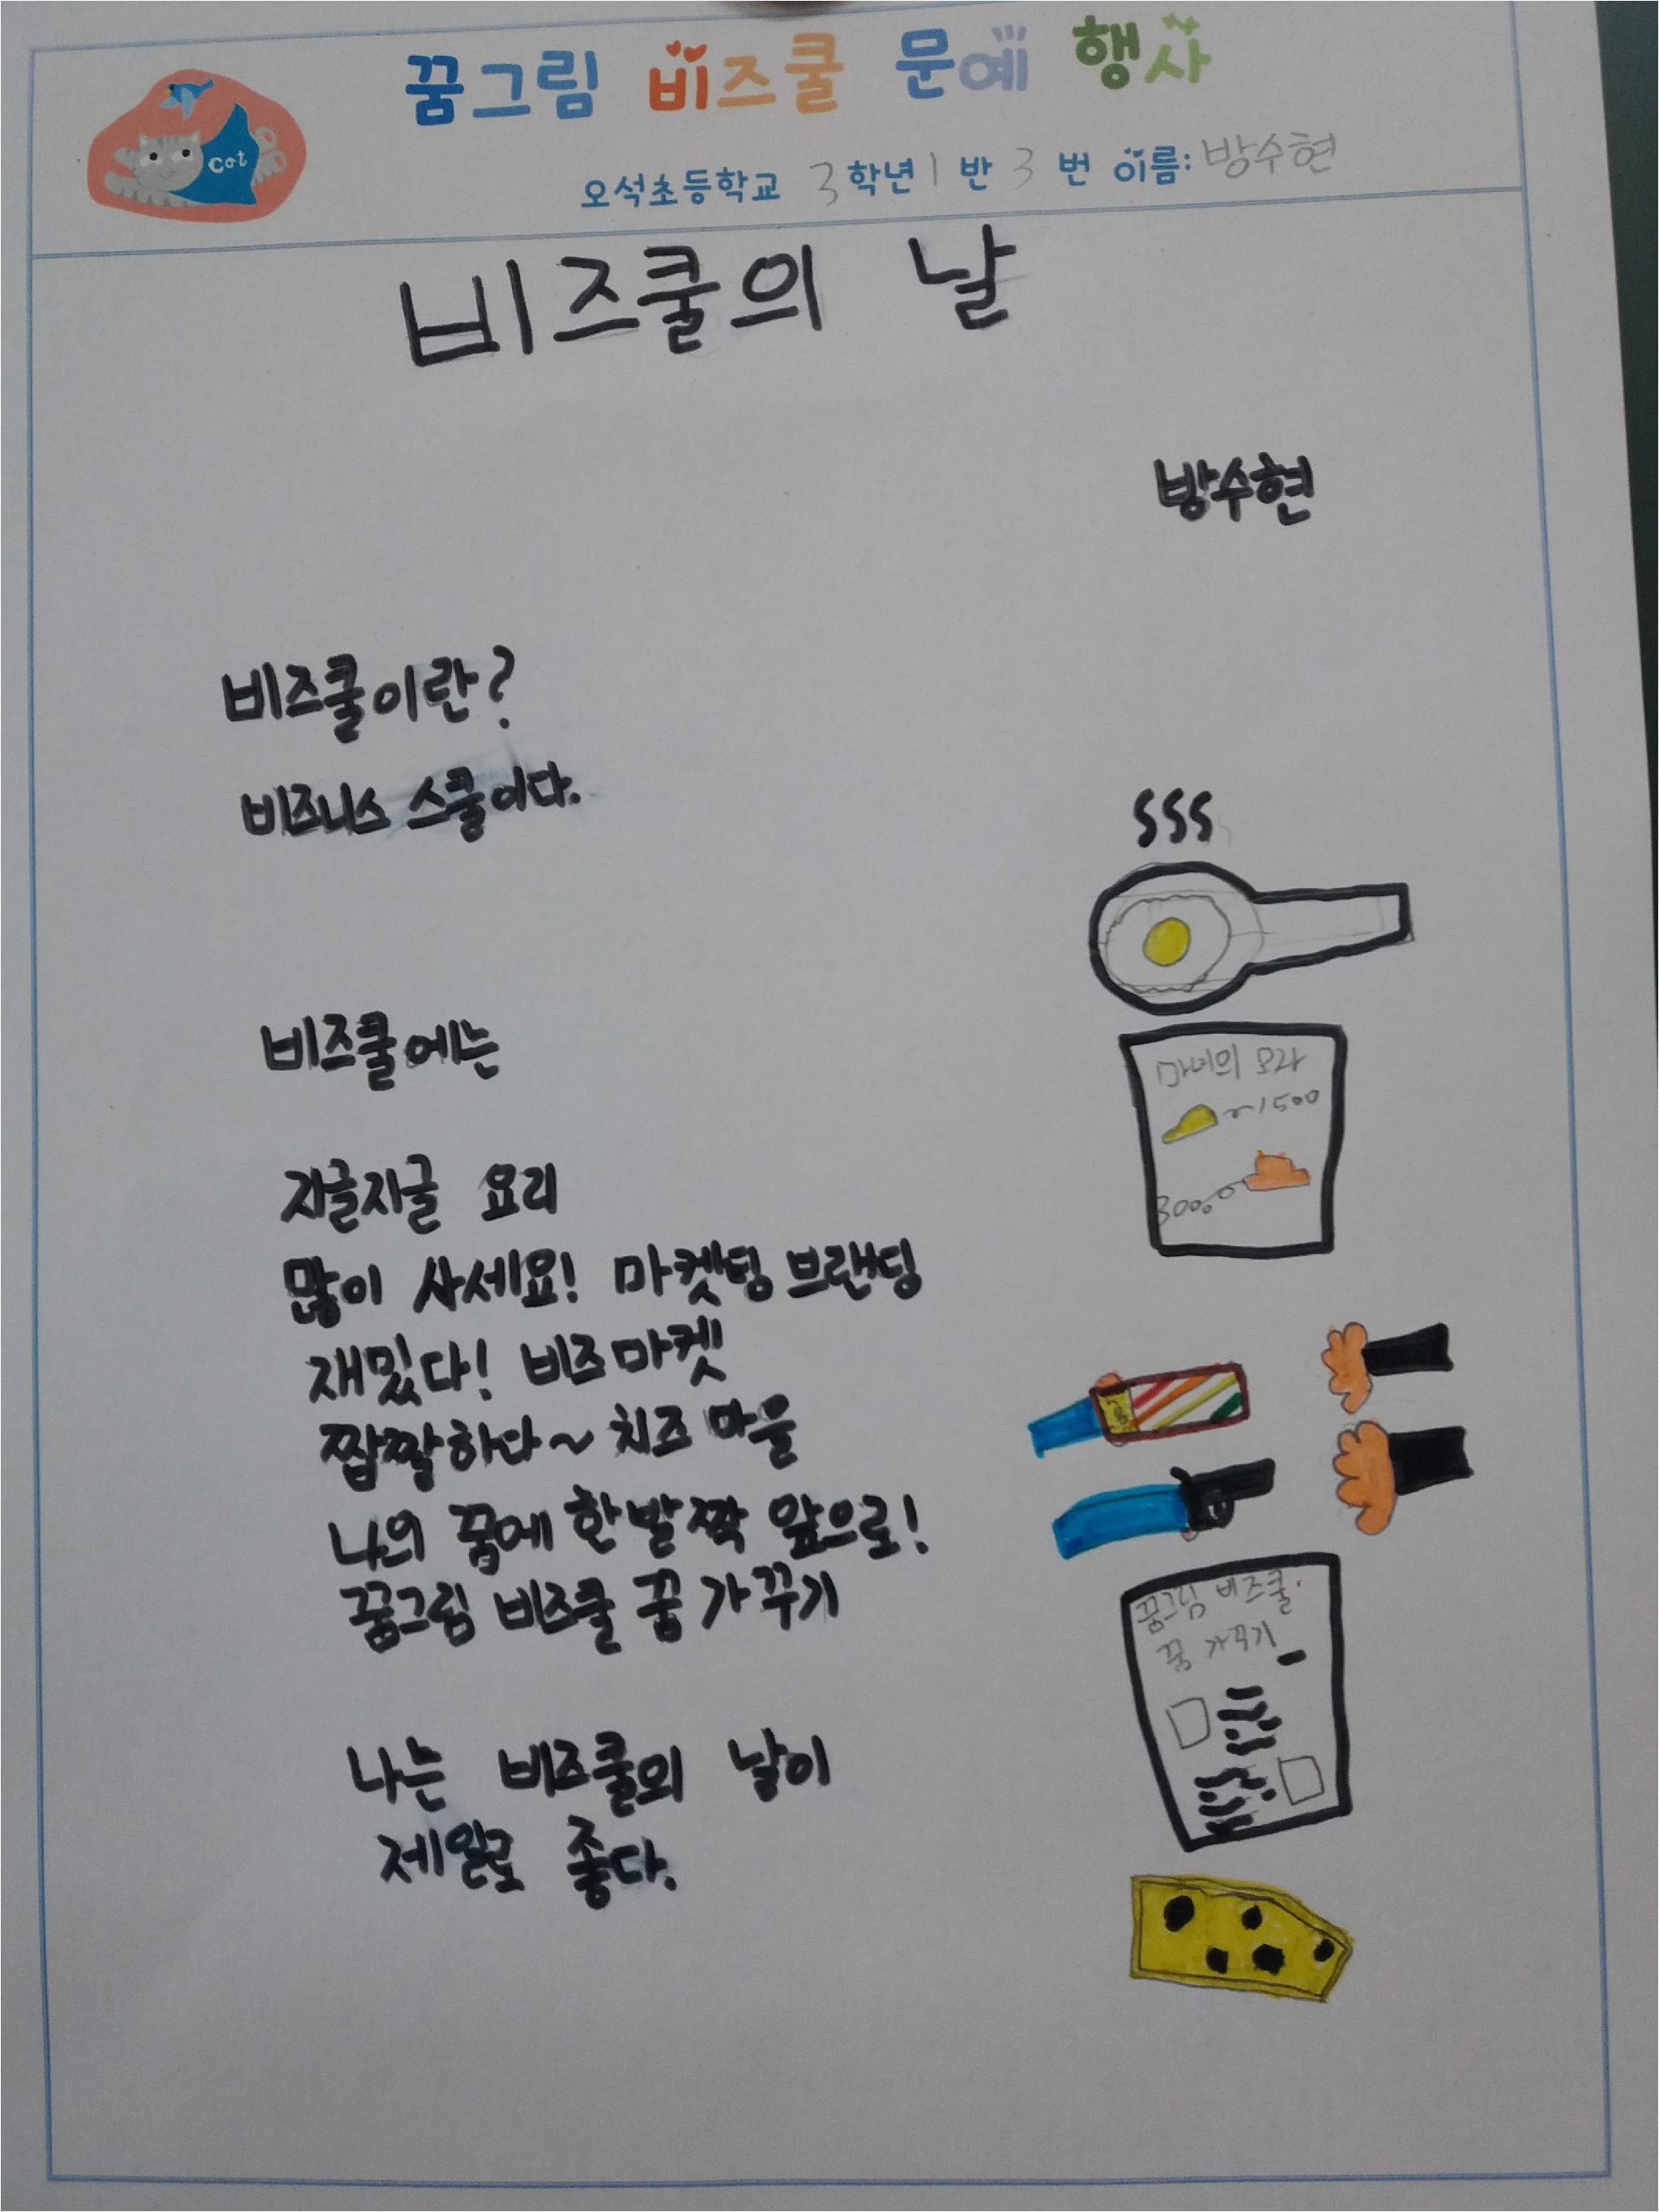 꿈그림 비즈쿨 문예 행사
cat
오석초등학교 3학년 1 반 3 번 이름: 방수현
비즈쿨의 날
방수현
비즈쿨이란?
비즈니스 스쿨이다.
비즈쿨에는
지글지글 요리
많이 사세요! 마켓팅 브랜딩
재밌다! 비즈마켓
짭짤하다~ 치즈 마을
나의 꿈에 한발짝 앞으로!
꿈그림 비즈쿨 꿈 가꾸기
나는 비즈쿨의 날이
제일로 좋다.
SSS
마녀의 모자
~1500
3000
꿈그림 비즈쿨
꿈 가꾸기